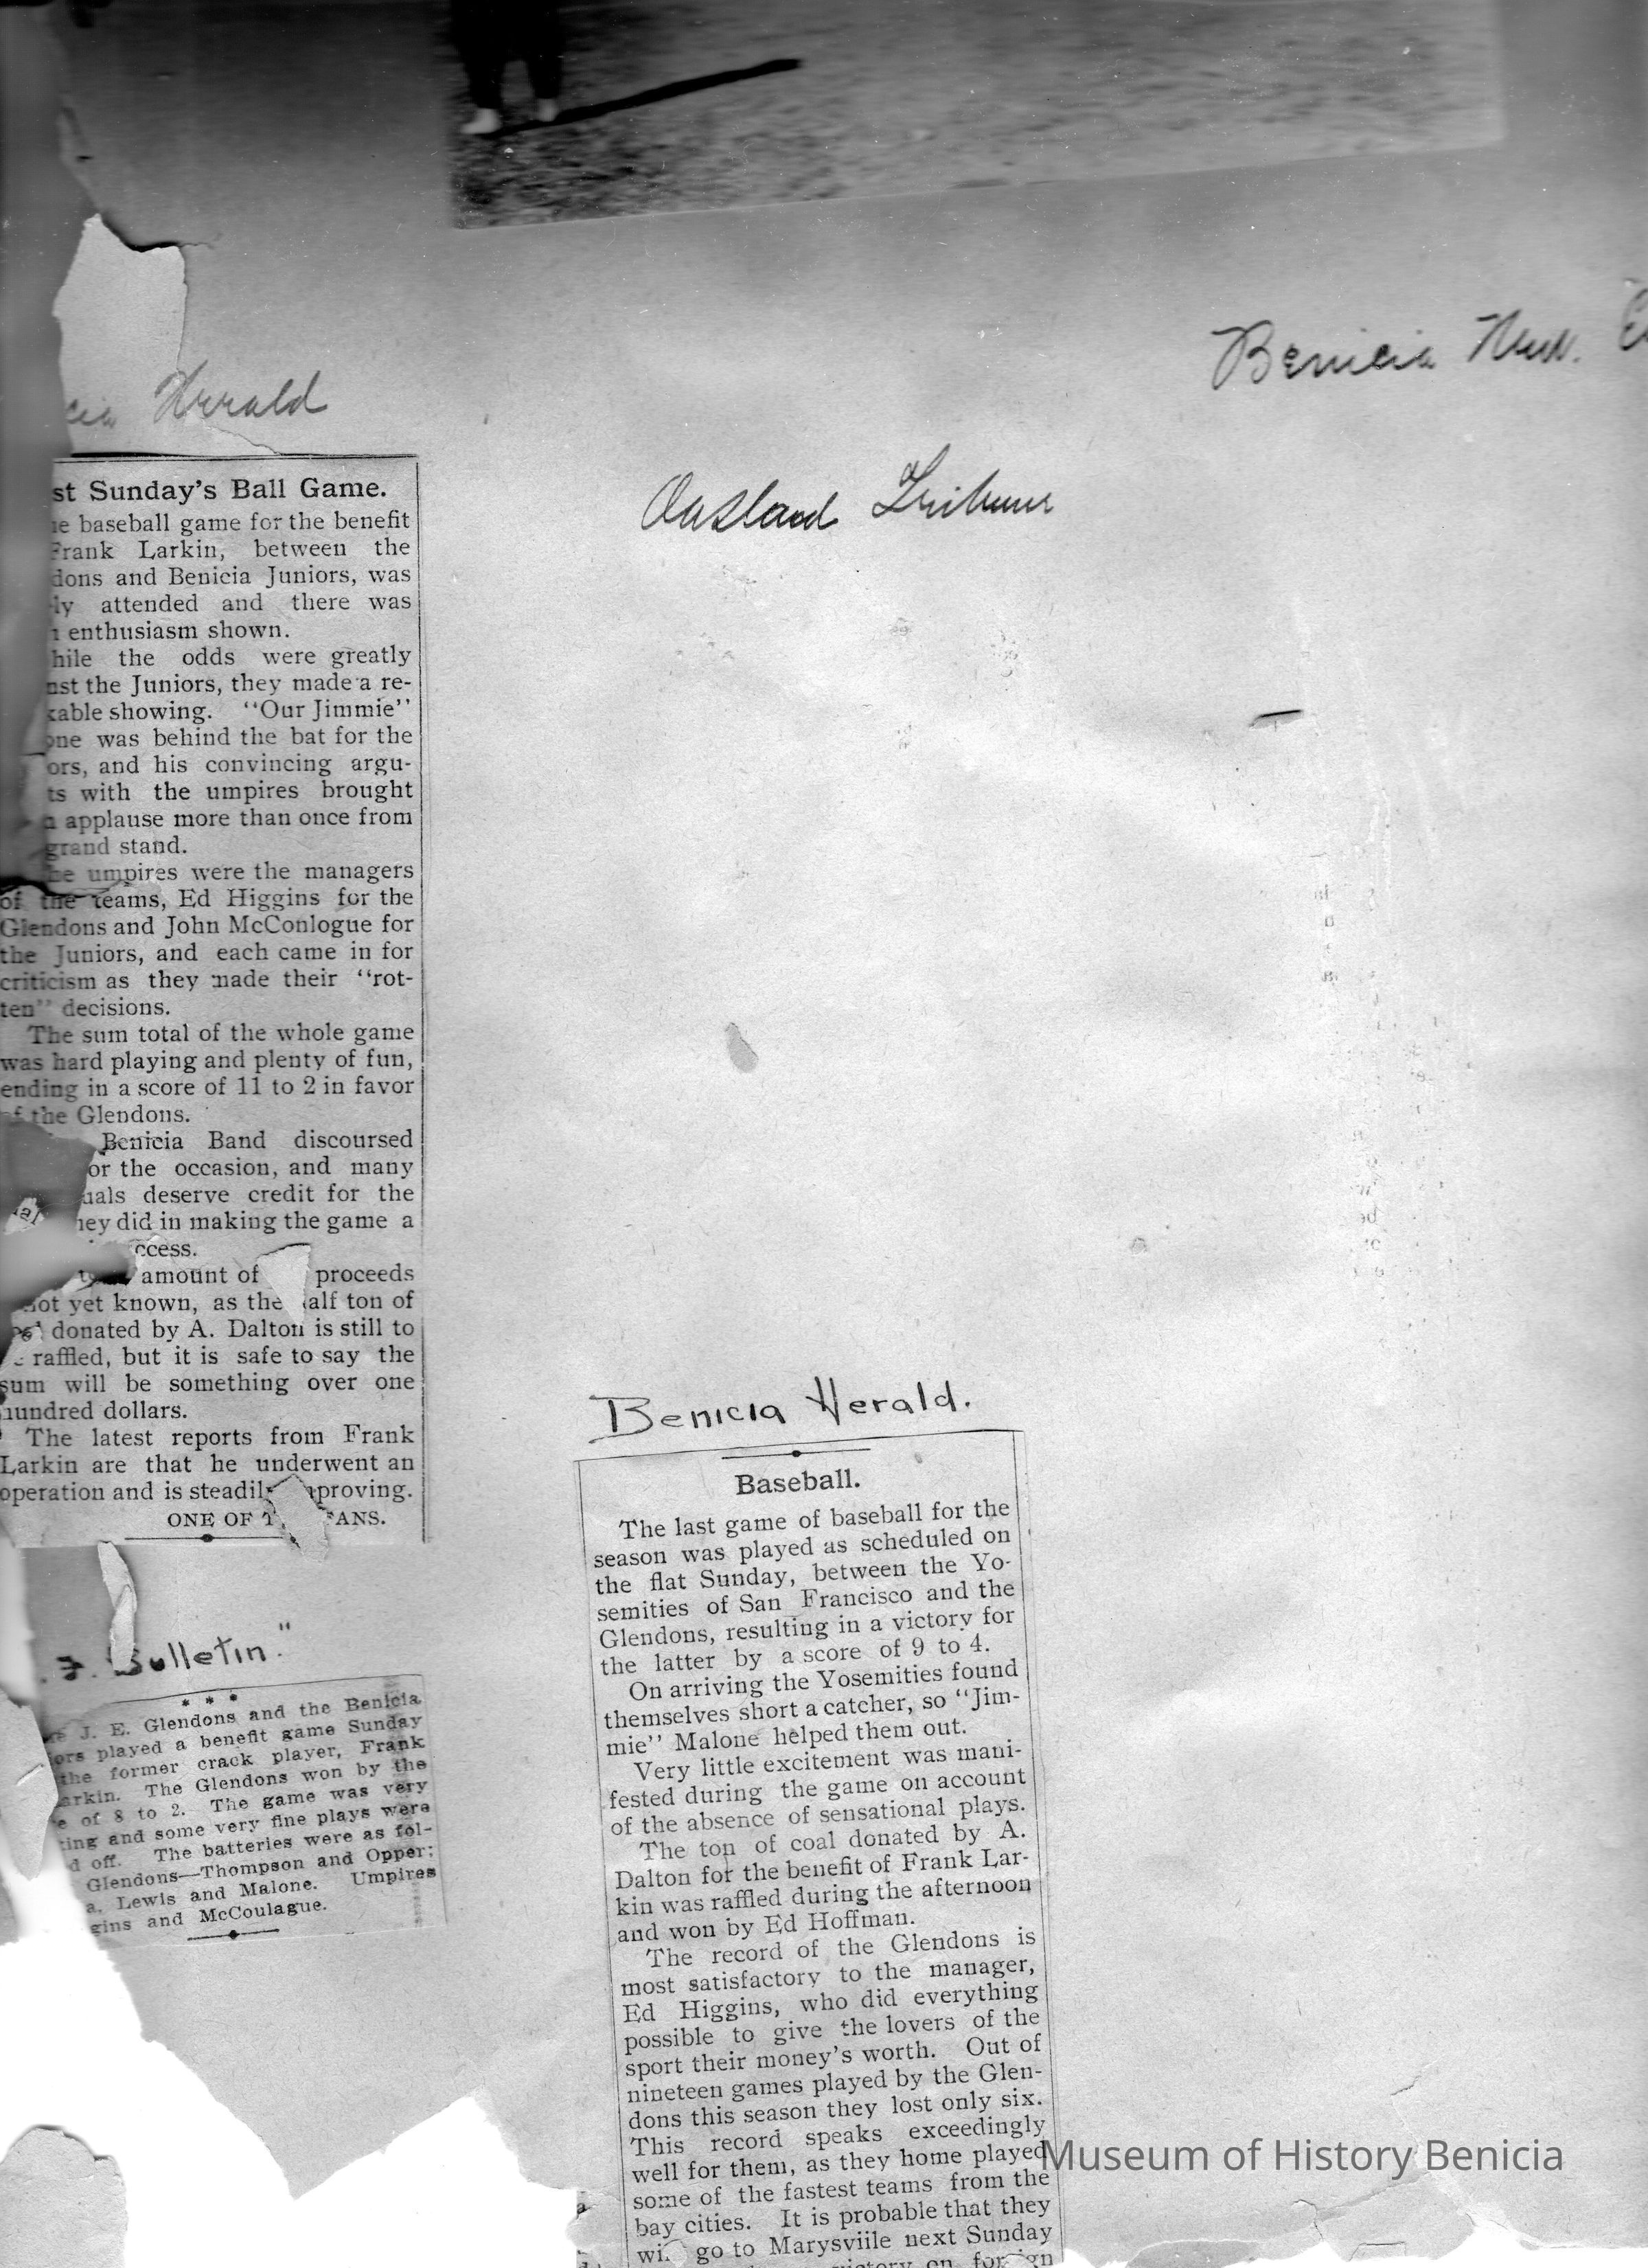 Herald
Benicia
Oakland Tribune
st Sunday's Ball Game.
e baseball game for the benefit
Frank Larkin, between the
dons and Benicia Juniors, was
ly attended and there was
enthusiasm shown.
hile the odds were greatly
nst the Juniors, they made a re-
kable showing. "Our Jimmie"
one was behind the bat for the
ors, and his convincing argu-
ts with the umpires brought
applause more than once from
grand stand.
he umpires were the managers
of the teams, Ed Higgins for the
Glendons and John McConlogue for
the Juniors, and each came in for
criticism as they made their "rot-
ten" decisions.
The sum total of the whole game
was hard playing and plenty of fun,
ending in a score of 11 to 2 in favor
of the Glendons.
Benicia Band discoursed
or the occasion, and many
uals deserve credit for the
hey did in making the game a
ccess.
amount of proceeds
not yet known, as the alf ton of
donated by A. Dalton is still to
raffled, but it is safe to say the
sum will be something over one
hundred dollars.
The latest reports from Frank
Larkin are that he underwent an
operation and is steadil proving.
ONE OF T FANS.
F. Bulletin."
* * *
e J. E. Glendons and the Benicia
ors played a benefit game Sunday
the former crack player, Frank
arkin. The Glendons won by the
e of 8 to 2. The game was very
ting and some very fine plays were
d off. The batteries were as fol-
Glendons—Thompson and Opper;
a, Lewis and Malone. Umpires
gins and McCoulague.
Benicia Herald.
Baseball.
The last game of baseball for the
season was played as scheduled on
the flat Sunday, between the Yo-
semities of San Francisco and the
Glendons, resulting in a victory for
the latter by a score of 9 to 4.
On arriving the Yosemities found
themselves short a catcher, so "Jim-
mie" Malone helped them out.
Very little excitement was mani-
fested during the game on account
of the absence of sensational plays.
The ton of coal donated by A.
Dalton for the benefit of Frank Lar-
kin was raffled during the afternoon
and won by Ed Hoffman.
The record of the Glendons is
most satisfactory to the manager,
Ed Higgins, who did everything
possible to give the lovers of the
sport their money's worth. Out of
nineteen games played by the Glen-
dons this season they lost only six.
This record speaks exceedingly
well for them, as they home played
some of the fastest teams from the
bay cities. It is probable that they
wi go to Marysviile next Sunday
victory on foreign
Museum of History Benicia